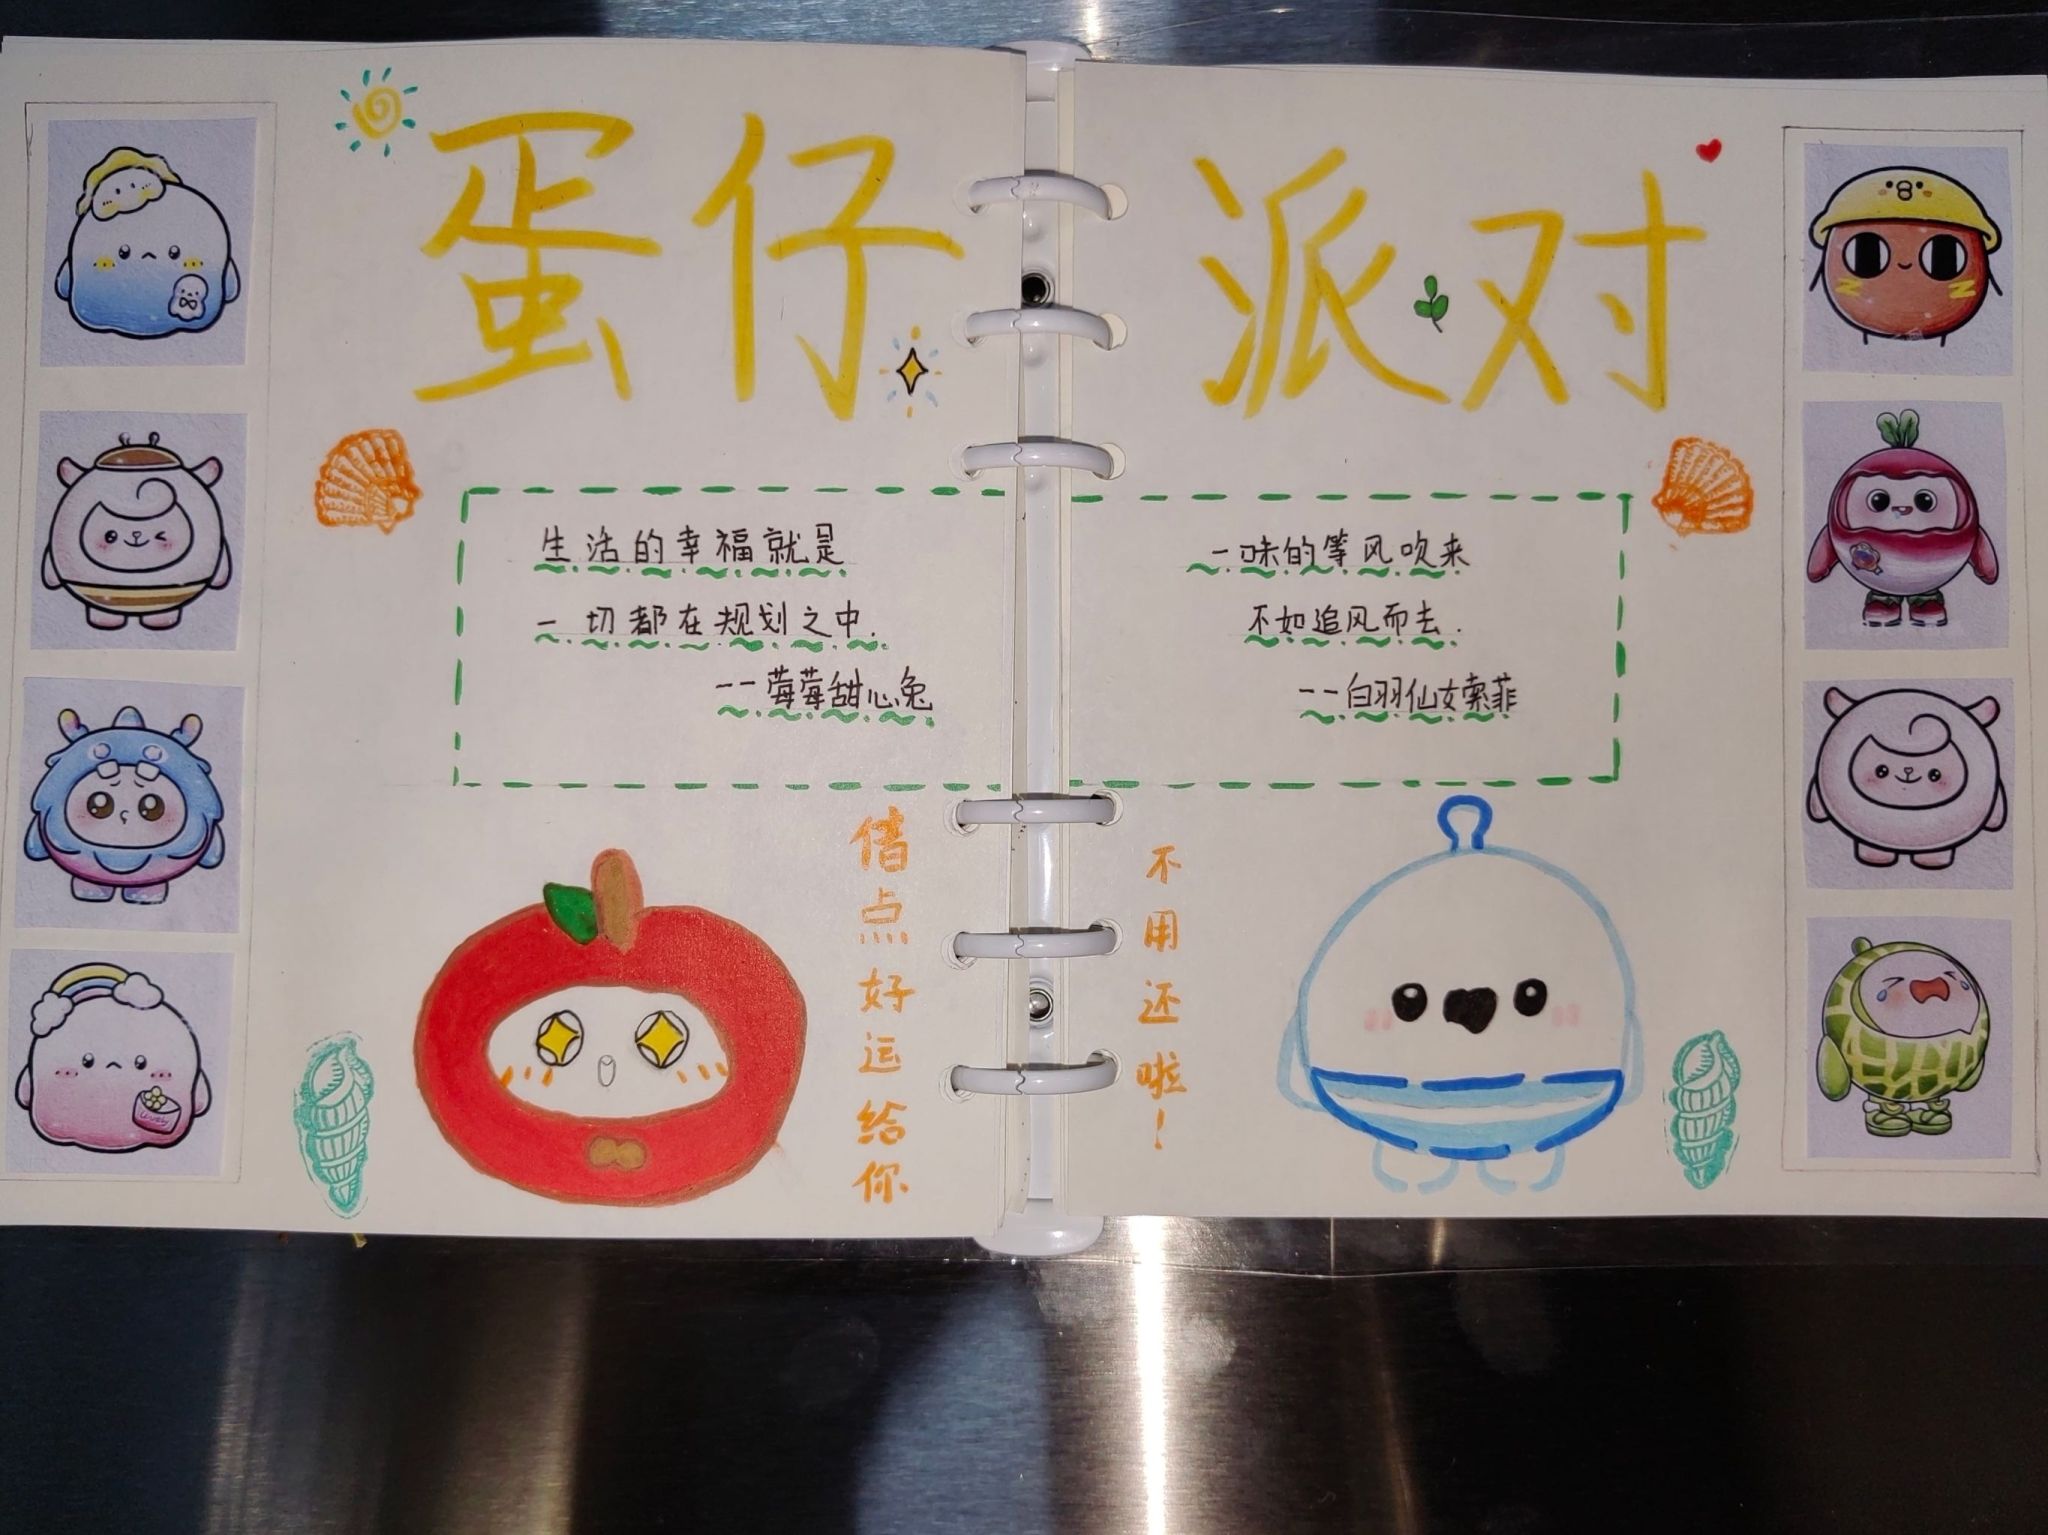 蛋仔派对
生活的幸福就是
一切都在规划之中.
--莓莓甜心兔
一味的等风吹来
不如追风而去.
--白羽仙女索菲
借点好运给你
不用还啦！